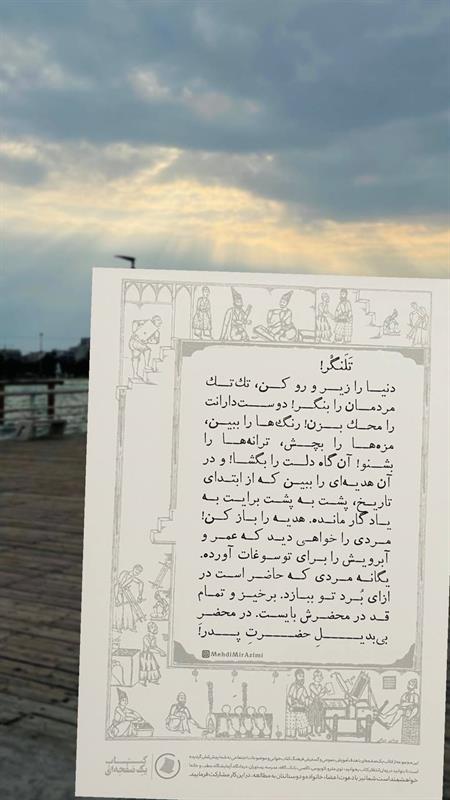 تَلَنگُر!
دنیا را زیر و رو کن، تك‌تك
مردمان را بنگر! دوست‌دارانت
را محك بزن! رنگ‌ها را ببین،
مزه‌ها را بچش، ترانه‌ها را
بشنو! آن گاه دلت را بگشا! و در
آن هدیه‌ای را ببین که از ابتدای
تاریخ، پشت به پشت برایت به
یادگار مانده. هدیه را باز کن!
مردی را خواهی دید که عمر و
آبرویش را برای تو سوغات آورده.
یگانه مردی که حاضر است در
ازای بُرد تو ببازد. برخیز و تمام
قد در محضرش بایست. در محضرِ
بی‌بدیلِ حضرتِ پدر!
MehdiMirAzimi
کتاب
یک صفحه‌ای
خواهشمند است شما نیز با دعوت اعضاء خانواده و دوستانتان به مطالعه، در این کار مشارکت فرمایید.